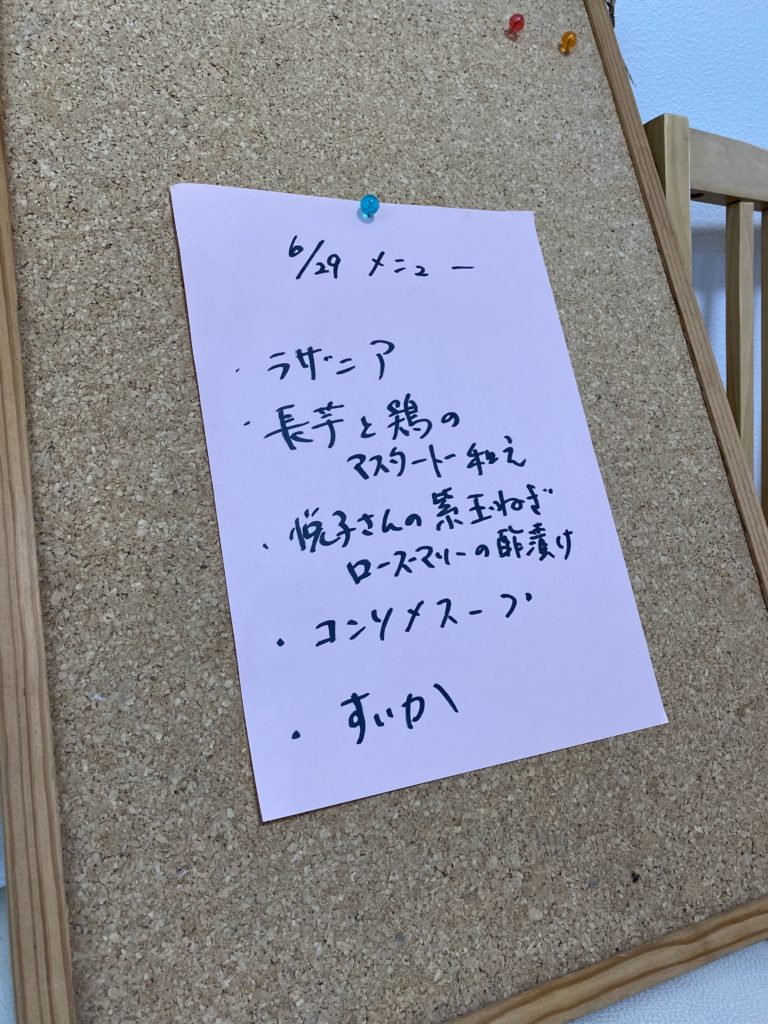 6/29 メニュー
・ラザニア
・長芋と鶏の
マスタード和え
・悦子さんの紫玉ねぎ
ローズマリーの酢漬け
・コンソメスープ
・すいか